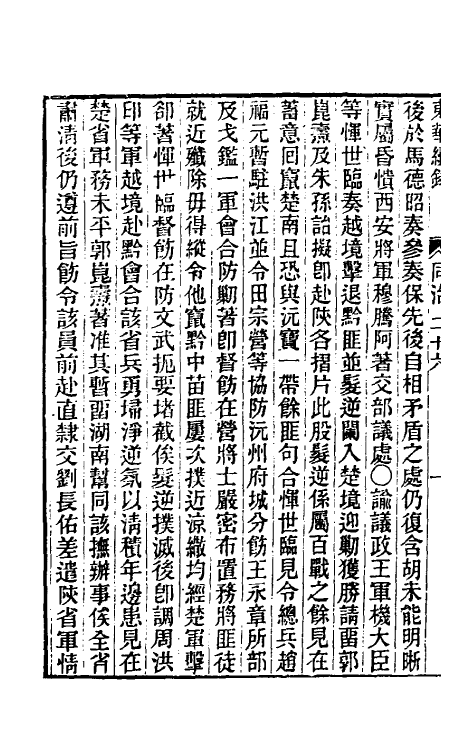 東華續錄 同治二十六 一
後於馬德昭奏參奏保先後自相矛盾之處仍復含胡未能明晰
實屬昏憒西安將軍穆騰阿著交部議處〇諭議政王軍機大臣
等惲世臨奏越境擊退黔匪並髮逆闌入楚境迎勦獲勝請畱郭
崑燾及朱孫詒擬卽赴陝各摺片此股髮逆係屬百戰之餘見在
蓄意回竄楚南且恐與沅寶一帶餘匪句合惲世臨見令總兵趙
福元暫駐洪江並令田宗營等協防沅州府城分飭王永章所部
及戈鑑一軍會合防勦著卽督飭在營將士嚴密布置務將匪徒
就近殲除毋得縱令他竄黔中苗匪屢次撲近涼繳均經楚軍擊
卻著惲世臨督飭在防文武扼要堵截俟髮逆撲滅後卽調周洪
印等軍越境赴黔會合該省兵勇埽淨逆氛以淸積年邊患見在
楚省軍務未平郭崑燾著准其暫畱湖南幫同該撫辦事俟全省
肅淸後仍遵前旨飭令該員前赴直隸交劉長佑差遣陝省軍情